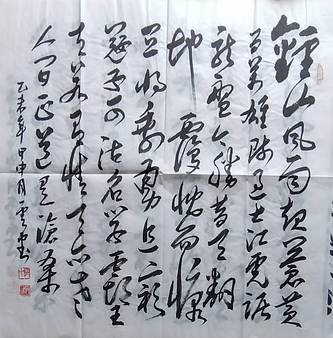 鍾山風雨起蒼黃
百萬雄師過大江虎踞
龍盤今勝昔天翻
地覆慨而慷
宜將剩勇追窮
寇不可沽名學霸王
天若有情天亦老
人間正道是滄桑
乙未年甲申月